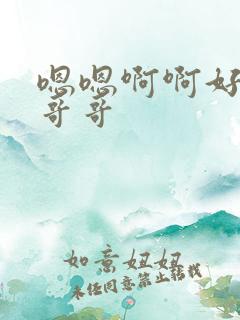 嗯嗯啊啊好
哥哥
如意妞妞
未经同意禁止转载